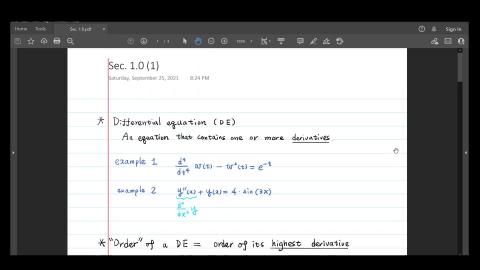 Home Tools Sec. 1.0.pdf × Sign In
Sec. 1.0 (1)
Saturday, September 25, 2021 8:24 PM
* Differential equation (DE)
An equation that contains one or more derivatives
example 1 d⁴/dt⁴ w(t) − w²(t) = e^-t
example 2 y''(x) + y(x) = 4 · sin(3x)
d²/dx² y
* "Order" of a DE = order of its highest derivative